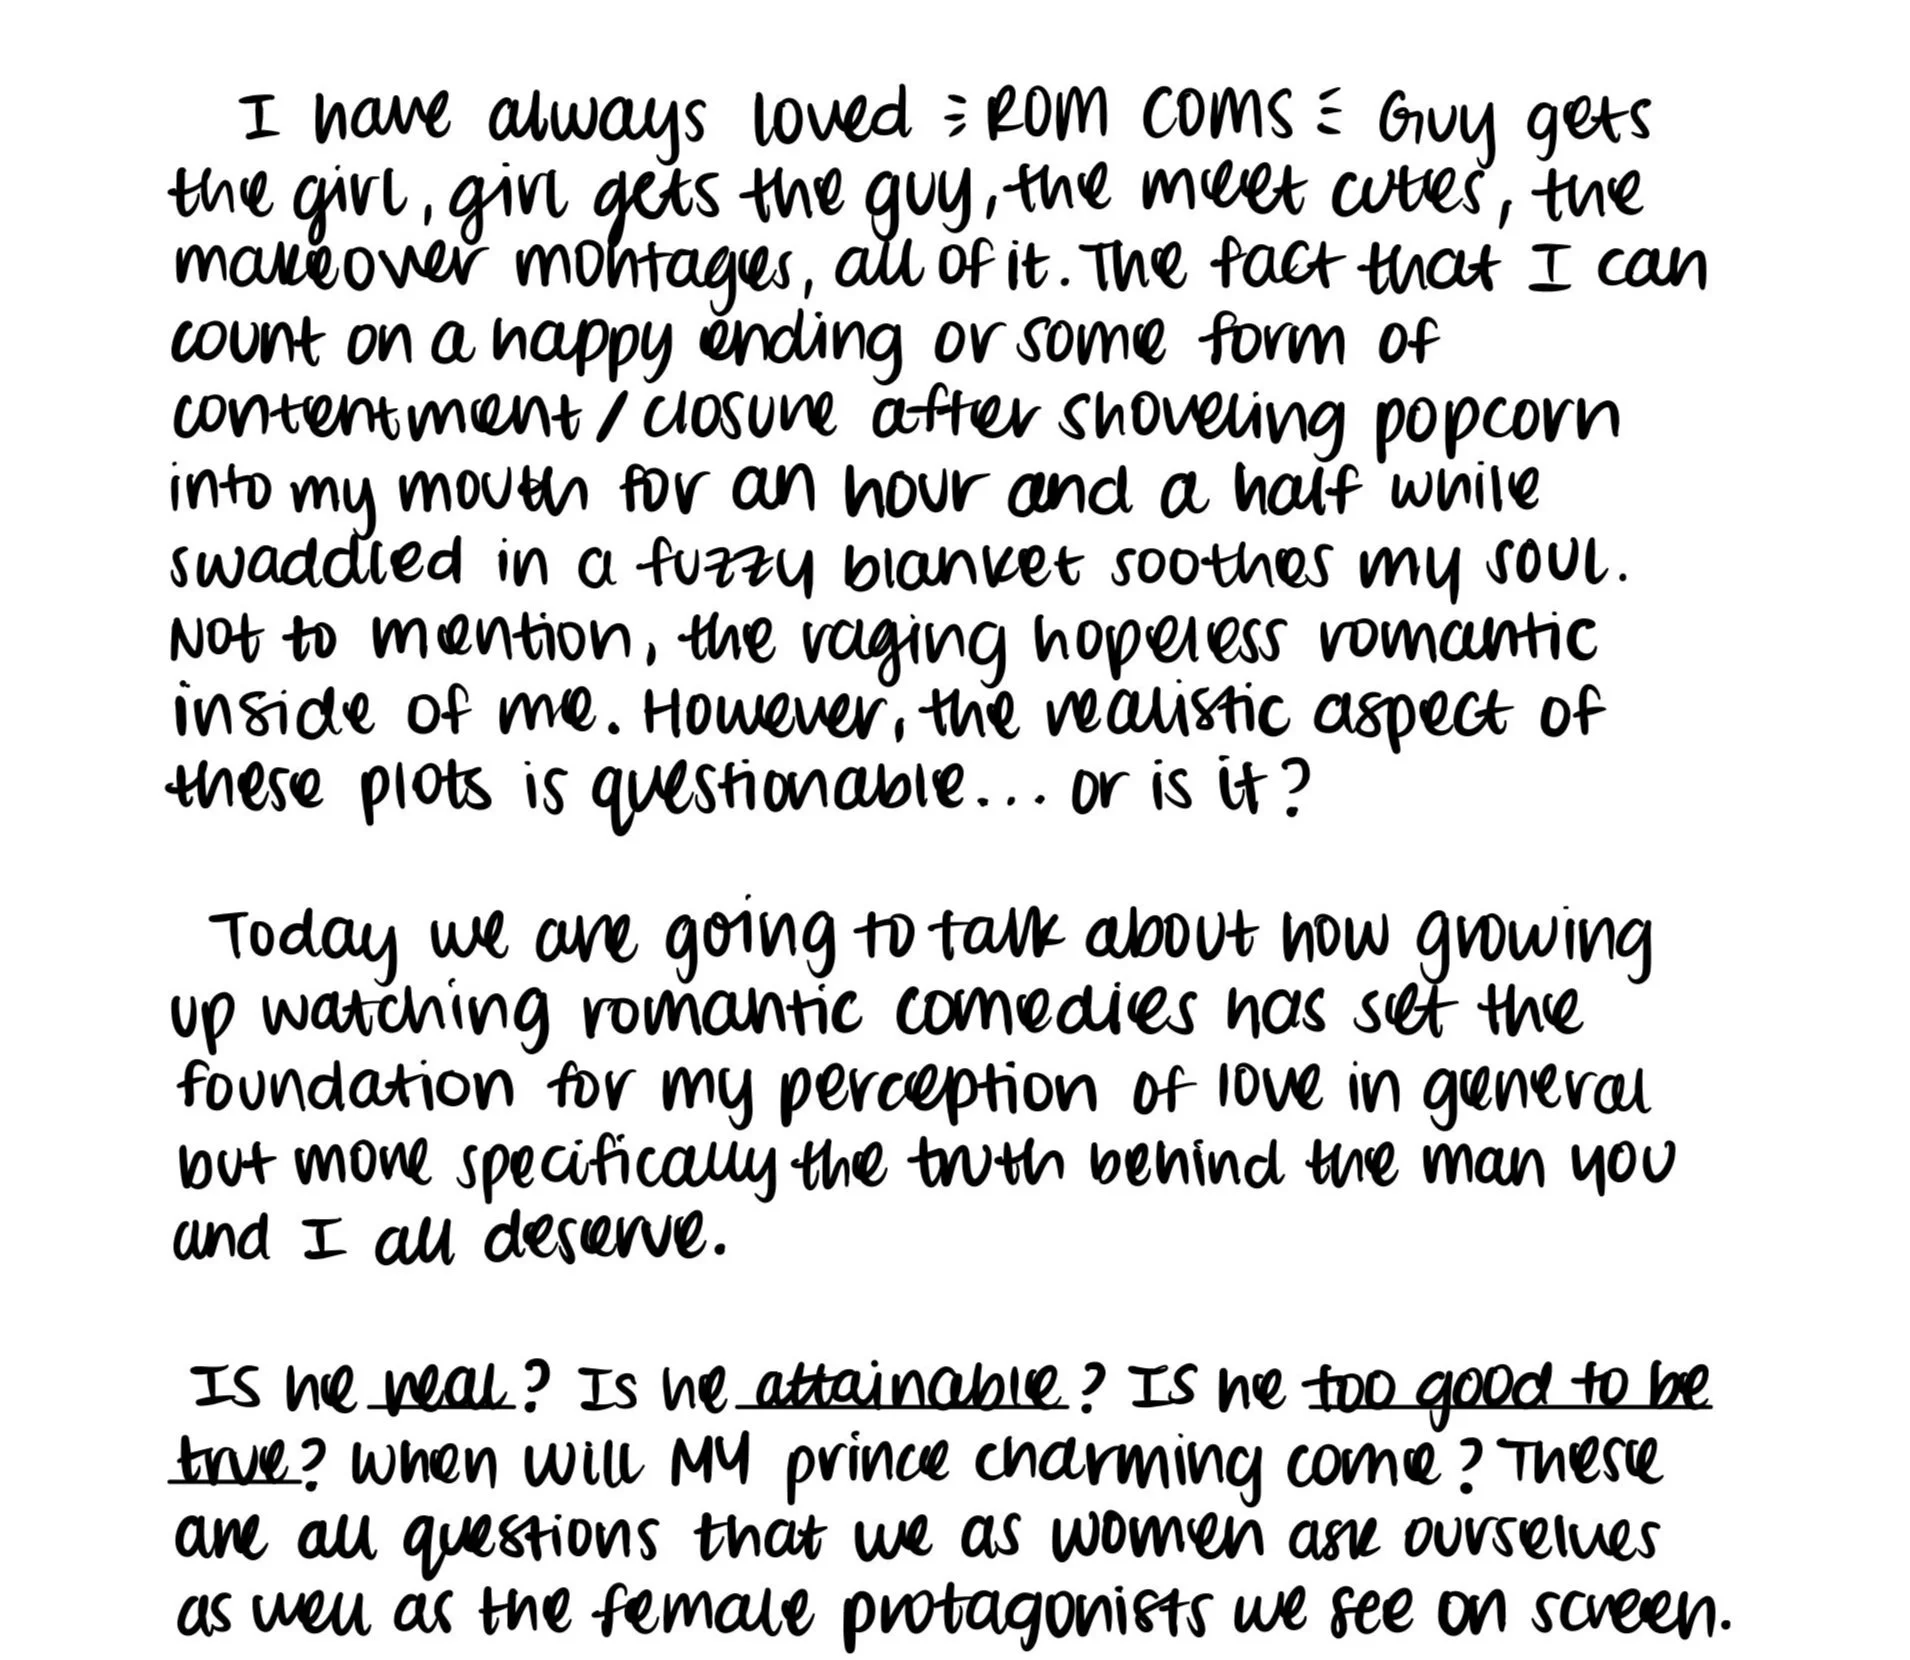 I have always loved ROM COMS Guy gets
the girl, girl gets the guy, the meet cutes, the
makeover montages, all of it. The fact that I can
count on a happy ending or some form of
contentment/closure after shoveling popcorn
into my mouth for an hour and a half while
swaddled in a fuzzy blanket soothes my soul.
Not to mention, the raging hopeless romantic
inside of me. However, the realistic aspect of
these plots is questionable... or is it?
Today we are going to talk about how growing
up watching romantic comedies has set the
foundation for my perception of love in general
but more specifically the truth behind the man you
and I all deserve.
Is he real? Is he attainable? Is he too good to be
true? When will MY prince charming come? These
are all questions that we as women ask ourselves
as well as the female protagonists we see on screen.